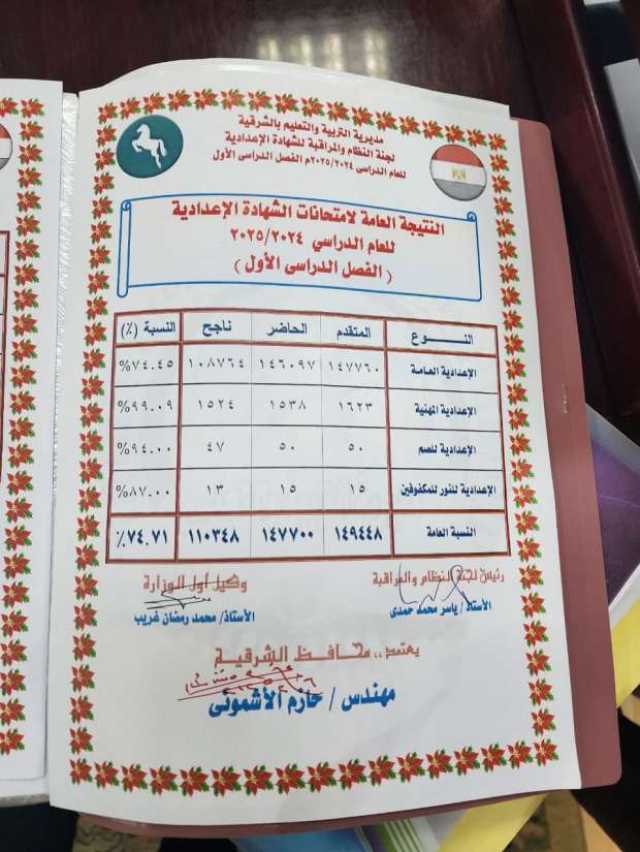 مديرية التربية والتعليم بالشرقية
لجنة النظام والمراقبة للشهادة الإعدادية
للعام الدراسى ٢٠٢٥/٢٠٢٤م الفصل الدراسى الأول
النتيجة العامة لامتحانات الشهادة الإعدادية
للعام الدراسي ٢٠٢٥/٢٠٢٤
( الفصل الدراسى الأول )
النـــوع المتقدم الحاضر ناجح النسبة (%)
الإعدادية العامة ١٤٧٧٦٠ ١٤٦٠٩٧ ١٠٨٧٦٤ %٧٤.٤٥
الإعدادية المهنية ١٦٢٣ ١٥٣٨ ١٥٢٤ %٩٩.٠٩
الإعدادية للصم ٥٠ ٥٠ ٤٧ %٩٤.٠٠
الإعدادية للنور للمكفوفين ١٥ ١٥ ١٣ %٨٧.٠٠
النسبة العامة ١٤٩٤٤٨ ١٤٧٧٠٠ ١١٠٣٤٨ ٪٧٤.٧١
رئيس لجنة النظام والمراقبة
الأستاذ/ ياسر محمد حمدى
وكيل أول الوزارة
الأستاذ/ محمد رمضان غريب
يعتمد،، محافظ الشرقية
مهندس / حازم الأشمونى